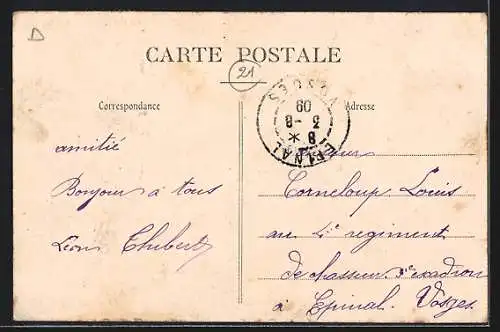 D
CARTE POSTALE
21
Correspondance
Adresse
EPINAL
VOSGES
8 *
3 -8
09
amitié
Bonjour à tous
Léon Thibert
Corneloup Louis
au 4e regiment
de chasseur 3e escadron
à Epinal. Vosges